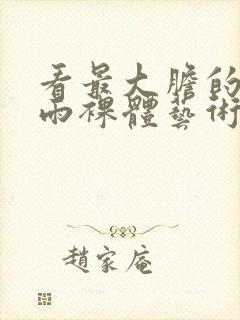 看最大膽的
雨裸體藝術
趙家庵